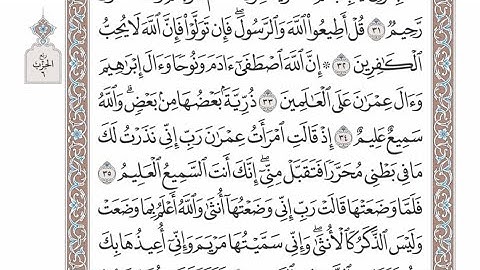 رَّحِيمٌ ٣١ قُلْ أَطِيعُوا۟ ٱللَّهَ وَٱلرَّسُولَ ۖ فَإِن تَوَلَّوْا۟ فَإِنَّ ٱللَّهَ لَا يُحِبُّ
ٱلْكَٰفِرِينَ ٣٢ ۞ إِنَّ ٱللَّهَ ٱصْطَفَىٰٓ ءَادَمَ وَنُوحًا وَءَالَ إِبْرَٰهِيمَ
وَءَالَ عِمْرَٰنَ عَلَى ٱلْعَٰلَمِينَ ٣٣ ذُرِّيَّةًۢ بَعْضُهَا مِنۢ بَعْضٍ ۗ وَٱللَّهُ
سَمِيعٌ عَلِيمٌ ٣٤ إِذْ قَالَتِ ٱمْرَأَتُ عِمْرَٰنَ رَبِّ إِنِّى نَذَرْتُ لَكَ
مَا فِى بَطْنِى مُحَرَّرًا فَتَقَبَّلْ مِنِّىٓ ۖ إِنَّكَ أَنتَ ٱلسَّمِيعُ ٱلْعَلِيمُ ٣٥
فَلَمَّا وَضَعَتْهَا قَالَتْ رَبِّ إِنِّى وَضَعْتُهَآ أُنثَىٰ وَٱللَّهُ أَعْلَمُ بِمَا وَضَعَتْ
وَلَيْسَ ٱلذَّكَرُ كَٱلْأُنثَىٰ ۖ وَإِنِّى سَمَّيْتُهَا مَرْيَمَ وَإِنِّىٓ أُعِيذُهَا بِكَ